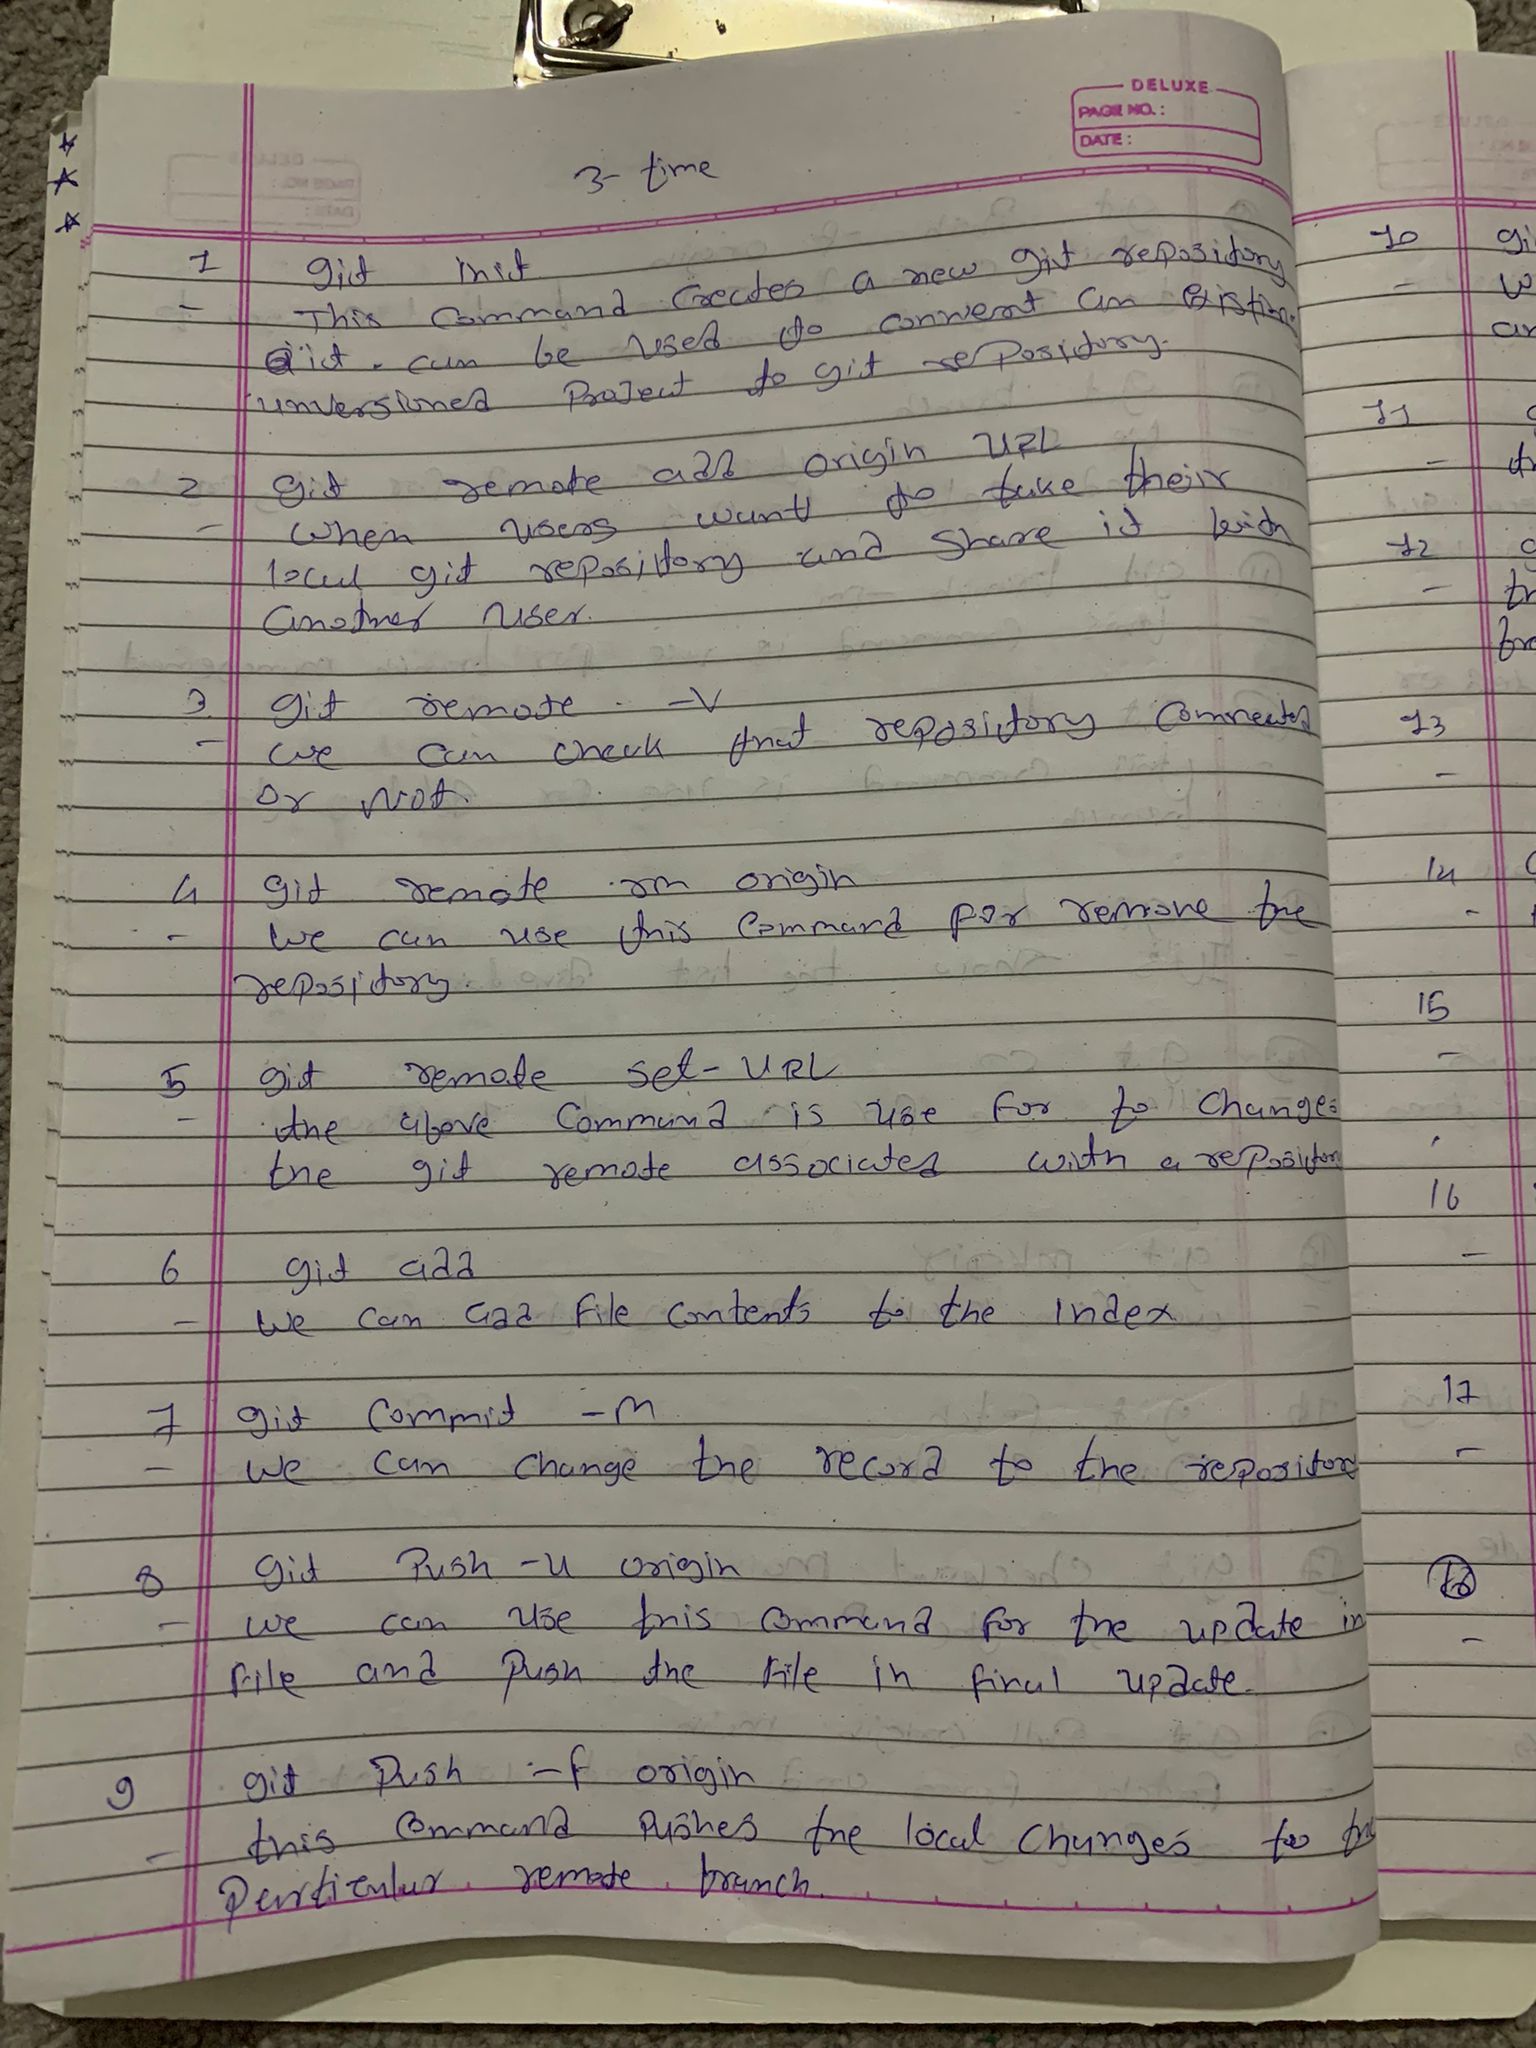 DELUXE
PAGE NO.:
DATE:
3- time
1 git init
- This command creates a new git repository
it. can be used to convert an existing
unversioned Project to git repository.
2 git remote add origin URL
- when users want to take their
local git repository and share it with
another user.
3 git remote -v
- we can check that repository connected
or not.
4 git remote rm origin
- we can use this command for remove the
repository.
5 git remote set-URL
- the above command is use for to changes
the git remote associated with a repository
6 git add
- we can add file contents to the index
7 git commit -m
- we can change the record to the repository
8 git Push -u origin
- we can use this command for the update in
file and push the file in final update.
9 git Push -f origin
- this command pushes the local changes to the
Perticular remote branch.
10 gi
-
11
-
12
-
13
-
14
-
15
-
16
-
17
-
18
-